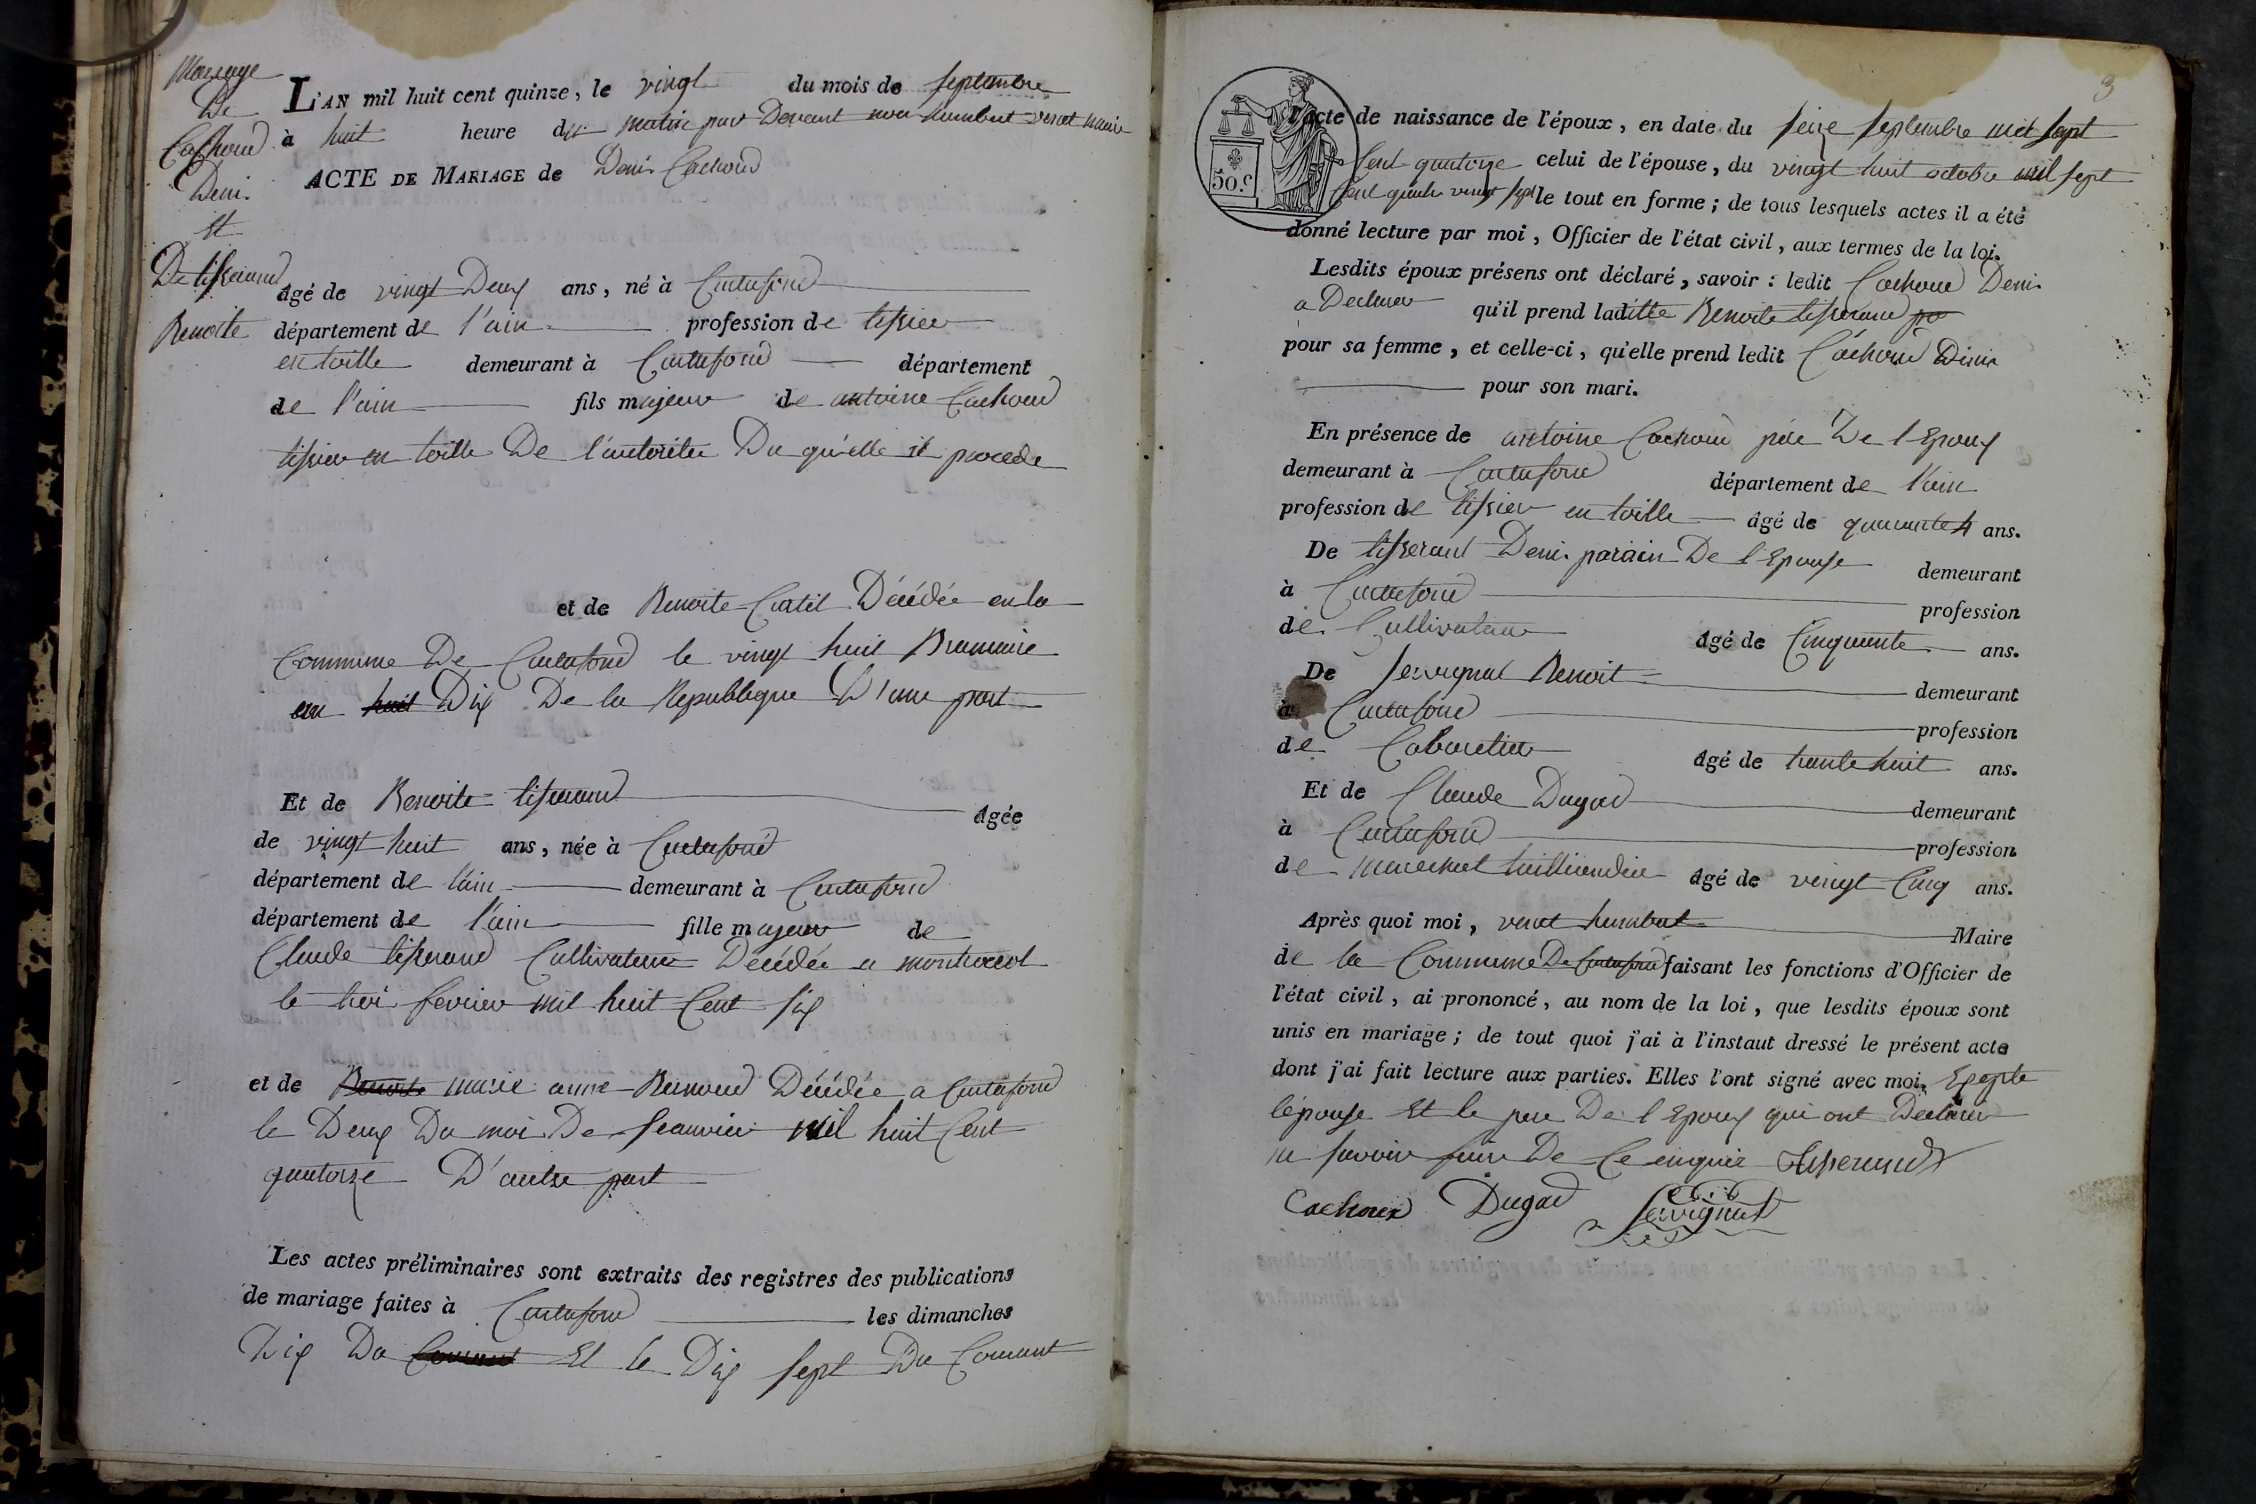 Mariage
De
Cachoud
Deni
Et
De tisserand
Benoite
L'AN mil huit cent quinze, le vingt du mois de septembre
à huit heure du matin par Devant nou humbert veret maire
ACTE DE MARIAGE de Deni Cachoud
âgé de vingt Deux ans, né à Curtafond
département de l'ain profession de tissier
en toille demeurant à Curtafond département
de l'ain fils majeur de antoine Cachoud
tissier en toille De l'autoritee Du qu'elle il procede
et de Benoite Cratil Décédée en la
Commune De Curtafond le vingt huit Brumaire
an huit Dix De la Republique D'une part
Et de Benoite tisserand âgée
de vingt huit ans, née à Curtafond
département de l'ain demeurant à Curtafond
département de l'ain fille majeur de
Claude tisserand Cultivateur Décédée a montracol
le troi fevrier mil huit Cent six
et de Benoite marie anne Renoud Décédée a Curtafond
le Deux Du moi De Jeanvier mil huit Cent
quatorze D'autre part
Les actes préliminaires sont extraits des registres des publications
de mariage faites à Curtafond les dimanches
Dix Du Courant Et le Dix sept Du Courant
3
50.c
l'acte de naissance de l'époux, en date du seize septembre mil sept
Cent quatorze celui de l'épouse, du vingt huit octobre mil sept
Cent quatre vingt sept le tout en forme; de tous lesquels actes il a été
donné lecture par moi, Officier de l'état civil, aux termes de la loi.
Lesdits époux présens ont déclaré, savoir : ledit Cachoud Deni
a Declarer qu'il prend laditte Benoite tisserand po
pour sa femme, et celle-ci, qu'elle prend ledit Cachoud Deni
pour son mari.
En présence de antoine Cachoud pére De l Epoux
demeurant à Curtafond département de l'ain
profession de tissier en toille âgé de quarante 4 ans.
De tisserant Deni parain De l Epouse demeurant
à Curtafond profession
de Cultivateur âgé de Cinquante ans.
De Servignat Benoit demeurant
à Curtafond profession
de Cabaretier âgé de trante huit ans.
Et de Claude Dugad demeurant
à Curtafond profession
de marechal tailliandier âgé de vingt Cinq ans.
Après quoi moi, veret humbert Maire
de la Commune De Curtafond faisant les fonctions d'Officier de
l'état civil, ai prononcé, au nom de la loi, que lesdits époux sont
unis en mariage; de tout quoi j'ai à l'instaut dressé le présent acte
dont j'ai fait lecture aux parties. Elles l'ont signé avec moi. Exepte
l'épouse Et le pere De l Epoux qui ont Déclarer
ne savoir faire De Ce enquiz tisserand
Cachoux Dugad Servignat